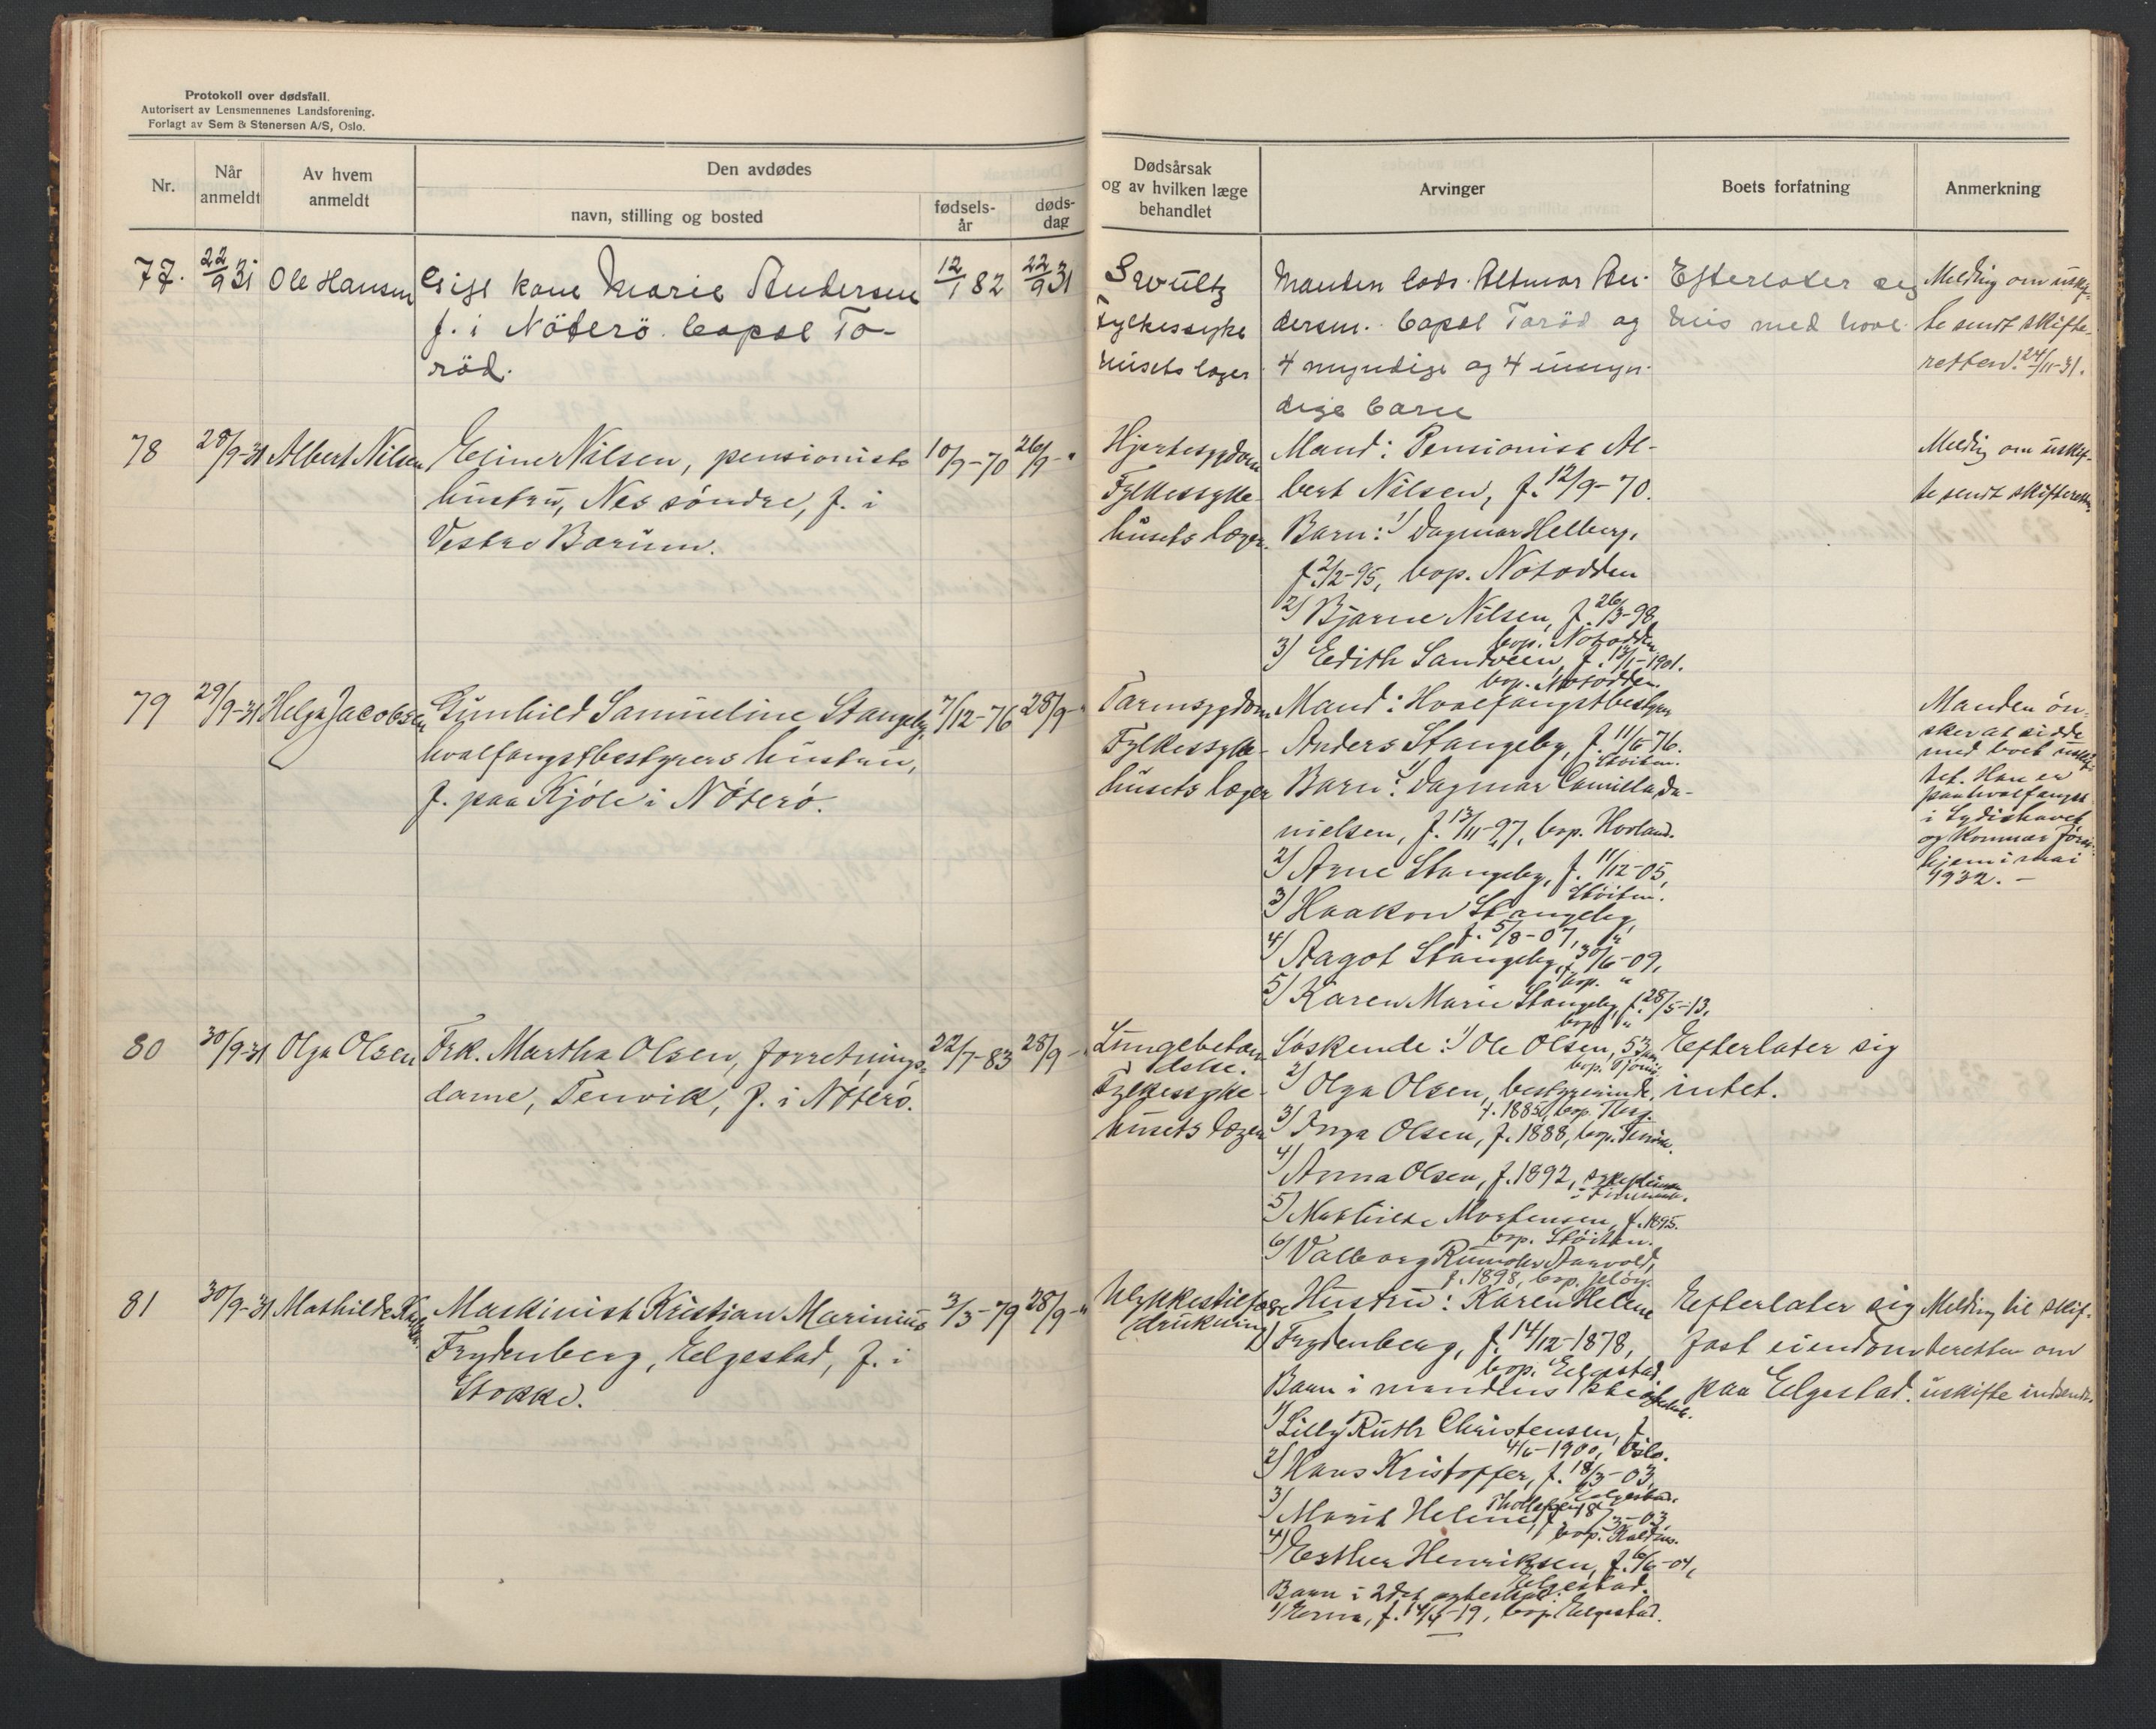 Protokoll over dødsfall.
Autorisert av Lensmennenes Landsforening.
Forlagt av Sem & Stenersen A/S, Oslo.
Nr.
Når anmeldt
Av hvem anmeldt
Den avdødes
navn, stilling og bosted
fødselsår
dødsdag
Dødsårsak
og av hvilken læge
behandlet
Arvinger
Boets forfatning
Anmerkning
77. 22/9 31 Ole Hansen
Gift kone Marie Andersen 12/1 82 22/9 31
f. i Nöterö. bopæl To-
röd.
Svulst
Fylkessyke
husets læger
Manden lods Altmar An-
dersen. bopæl Toröd og
4 myndige og 4 umyn-
dige barn
Efterlater seg
hus med
Melding om uskif-
te sendt skifte-
retten 24/11-31.
78 28/9-31 Albert Nilsen
Eline Nilsen, pensionists 10/9-70 26/9-"
hustru, Nes søndre, f. i
Vestre Bærum.
Hjertesygdom
Fylkessyke-
husets læger.
Mand: Pensionist Al-
bert Nilsen, f. 12/9-70.
Barn: 1) Dagmar Helberg,
f. 2/2-95, bop. Notodden
2) Bjarne Nilsen, f. 26/3-98,
bop. Notodden
3) Edith Sandveen, f. 13/1-1901.
bop. Notodden.
Melding om uskif-
te sendt skifteretten
79 29/9-31 Helga Jacobsen
Gunhild Samueline Stangeby, 7/12-76 28/9-"
hvalfangstbestyrers hustru,
f. paa Kjøle i Nøterø.
Tarmsygdom
Fylkessyke-
husets læger
Mand: Hvalfangstbestyrer
Anders Stangeby, f. 11/6-76.
Støiten.
Barn: 1) Dagmar Camilla Da-
nielsen, f. 13/11-97, bop. Hovland.
2) Arne Stangeby, f. 11/12-05,
Støiten.
3) Haakon Stangeby,
f. 5/8-07, "
4) Aagot Stangeby, f. 30/6-09,
bop. "
5) Karen Marie Stangeby, f. 28/5-13,
bop. "
Manden øn-
sker at sidde
med boet uskif-
tet. Han er
paa hvalfangst
i Sydishavet
og kommer først
hjem i mai
1932. -
80 30/9-31 Olga Olsen
Frk. Martha Olsen, forretnings- 22/7-83 28/9-"
dame, Tenvik, f. i Nøterø.
Lungebetæn
delse.
Fylkessyke-
husets læger
Søskende: 1) Ole Olsen, 53 aar
bop. Tjømø.
2) Olga Olsen, bestyrerinde,
f. 1885, bop. Tbrg.
3) Inga Olsen, f. 1888, bop. Tenvik.
4) Anna Olsen, f. 1892,
5) Mathilde Mortensen, f. 1895.
bop. Støiten.
6) Valborg Aarvold,
f. 1898, bop. Jeløy.
Efterlater sig
intet.
81 30/9-31 Mathilde
Maskinist Kristian Marinius 3/3-79 28/9-"
Frydenberg, Elgestad, f. i
Stokke.
Ulykkestilfælde
(drukning)
Hustru: Karen Helene
Frydenberg, f. 14/12-1878,
bop. Elgestad.
Barn i mandens 1ste egteskab.
1) Lilly Ruth Christensen, f.
4/6-1900, Oslo.
2) Hans Kristoffer, f. 18/3-03,
Elgestad.
3) Marit Helene Thollefsen, f. 18/3-03,
bop.
4) Esther Henriksen, f. 6/6-04,
Elgestad.
Barn i 2det egteskab:
1) Erna, f. 14/4-19, bop. Elgestad.
Efterlater sig
fast eiendom
paa Elgestad.
Melding til skif-
teretten om
uskifte indsendt.